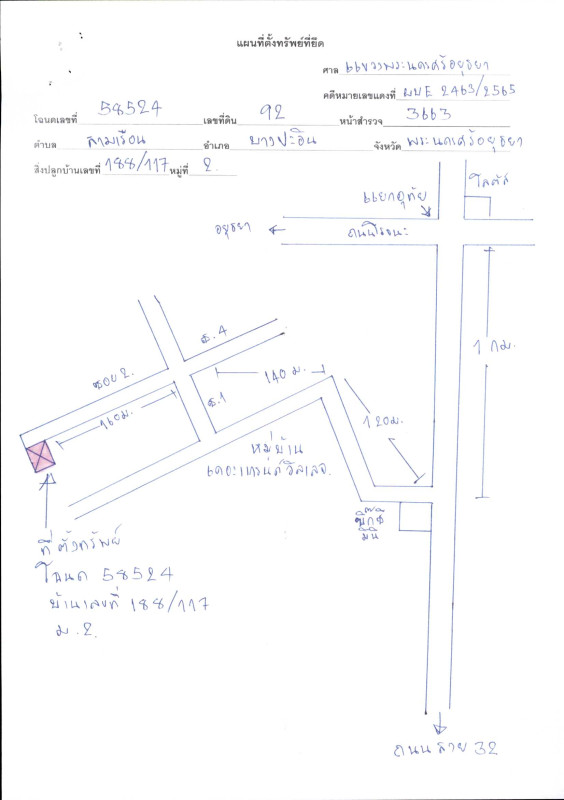 แผนที่ตั้งทรัพย์ที่ยึด
ศาล แขวงพระนครศรีอยุธยา
คดีหมายเลขแดงที่ ผบE 2463/2565
โฉนดเลขที่ 58524 เลขที่ดิน 92 หน้าสำรวจ 3663
ตำบล สามเรือน อำเภอ บางปะอิน จังหวัด พระนครศรีอยุธยา
สิ่งปลูกบ้านเลขที่ 188/117 หมู่ที่ 2
แยกอุทัย
โลตัส
อยุธยา
ถนนโรจนะ
1 กม.
ซ.4
ซอย 2.
140 ม.
ซ.1
160ม.
120ม.
หมู่บ้าน
เดอะแกรนด์วิลเลจ
บิ๊กซี
มินิ
ที่ตั้งทรัพย์
โฉนด 58524
บ้านเลขที่ 188/117
ม.2.
ถนน สาย 32